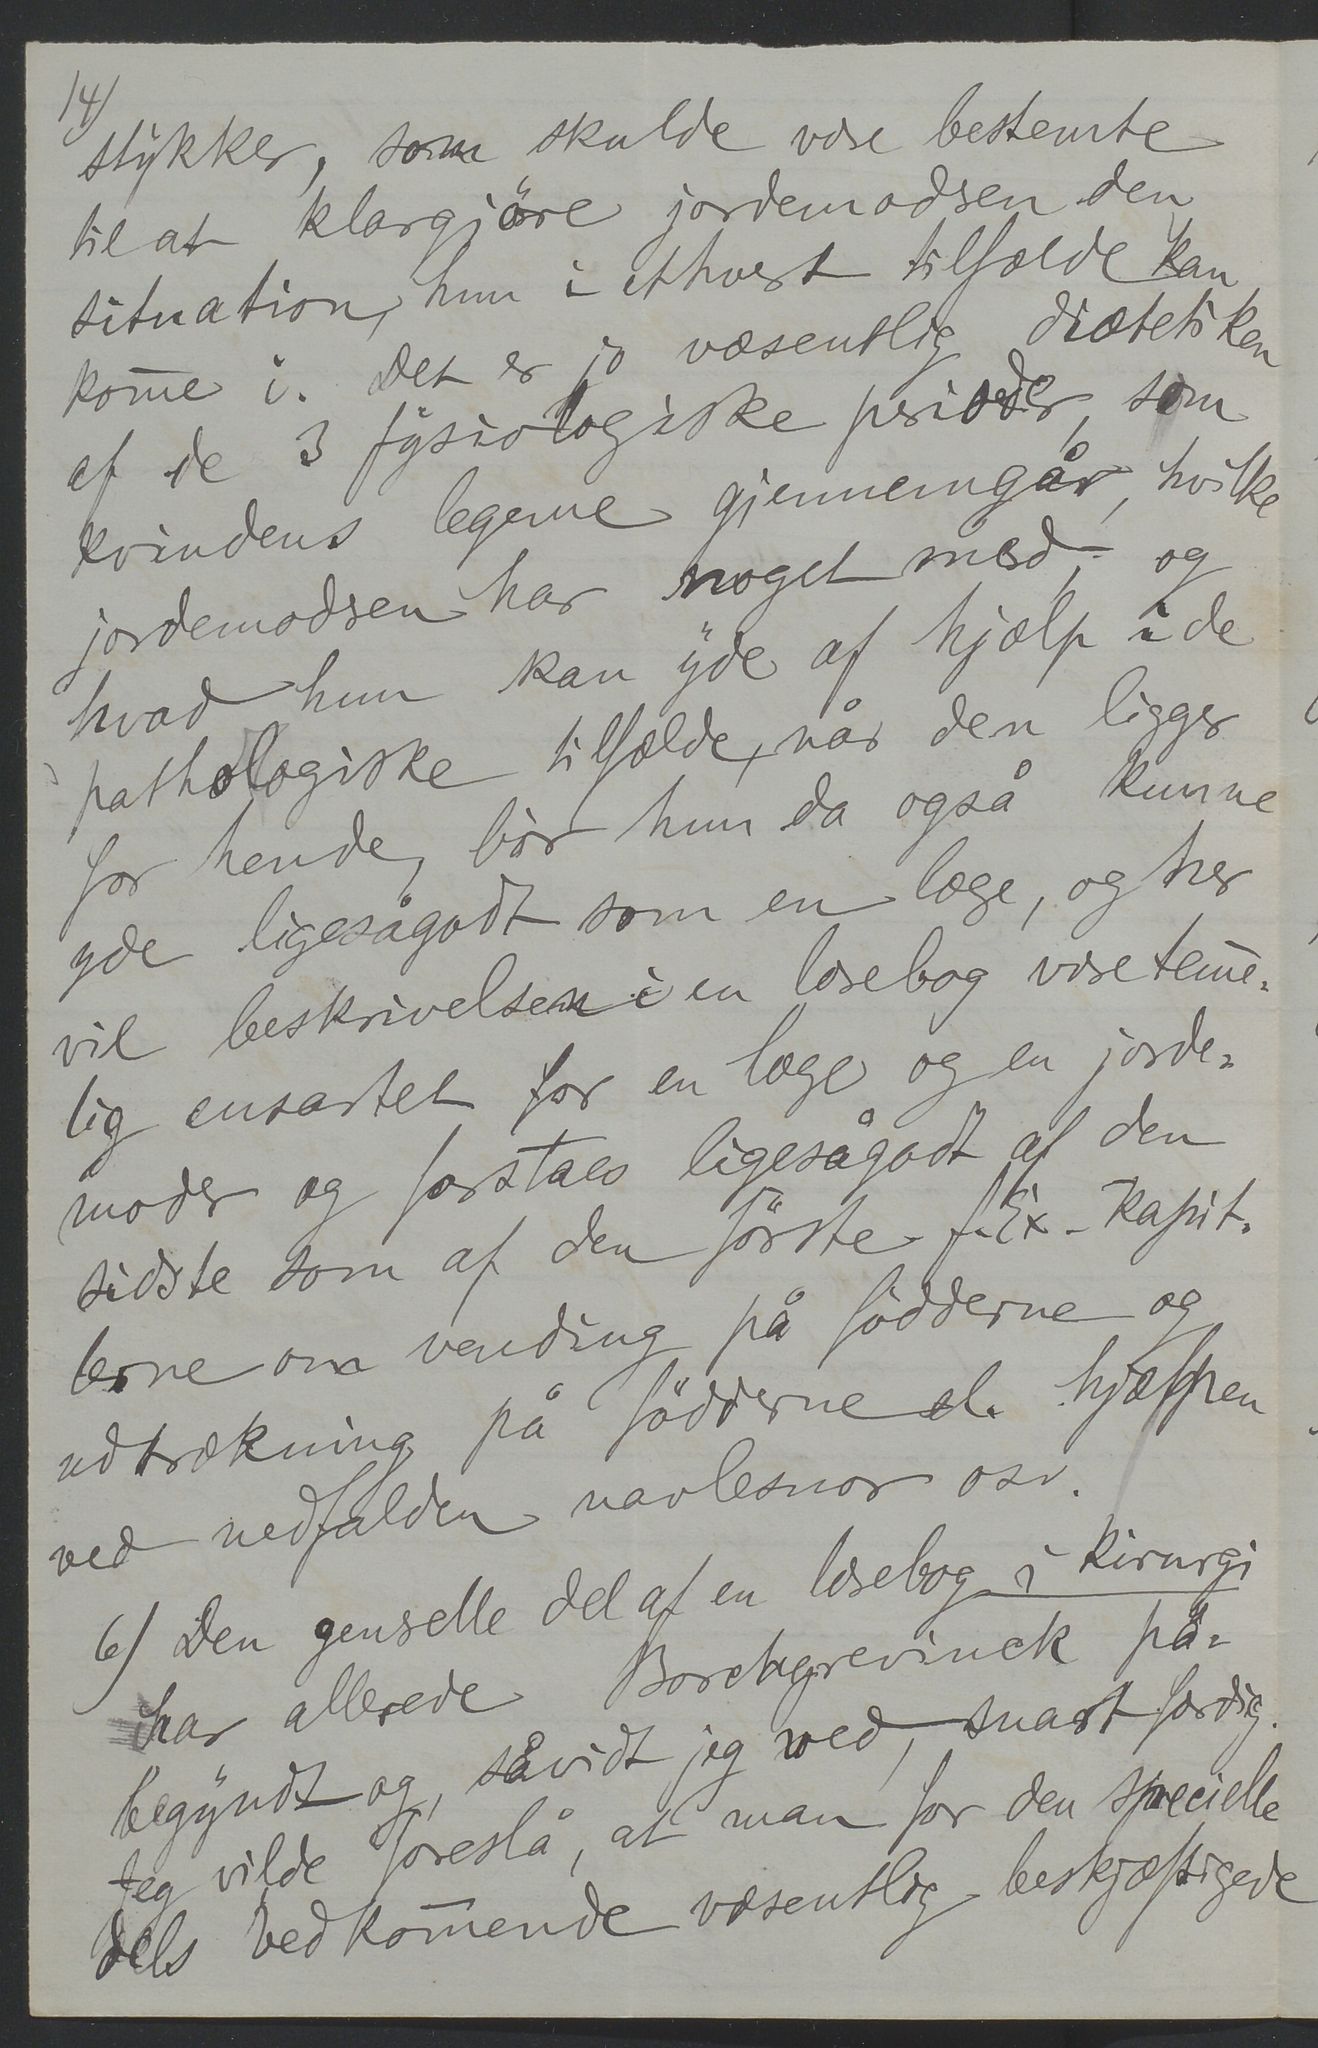 14)
stykker, som skulde være bestemte
til at klargjöre jordemodren den
situation, hun i ethvert tilfælde kan
kom̄e i. Det er jo væsentlig diætetiken
af de 3 fysiologiske perioder, som
kvindens legeme gjennemgår, hvilke
jordemodren har noget med, og
hvad hun kan yde af hjælp i de
pathologiske tilfælde, når den ligger
for hende, bör hun da også kunne
yde ligesågodt som en læge, og her
vil beskrivelsen i en lærebog være tem̄e-
lig ensartet for en læge og en jorde-
moder og forståes ligesågodt af den
sidste som af den förste f. Ex. kapit-
lerne om vending på födderne og
udtrækning på födderne el. hjælpen
ved nedfalden navlesnor osv.
6) Den generelle del af en lærebog i kirurgi
har allerede Borchgrevinck på-
begyndt og, såvidt jeg ved, snart færdig.
Jeg vilde foreslå, at man for den specielle
dels vedkom̄ende væsentlig beskjæftigede